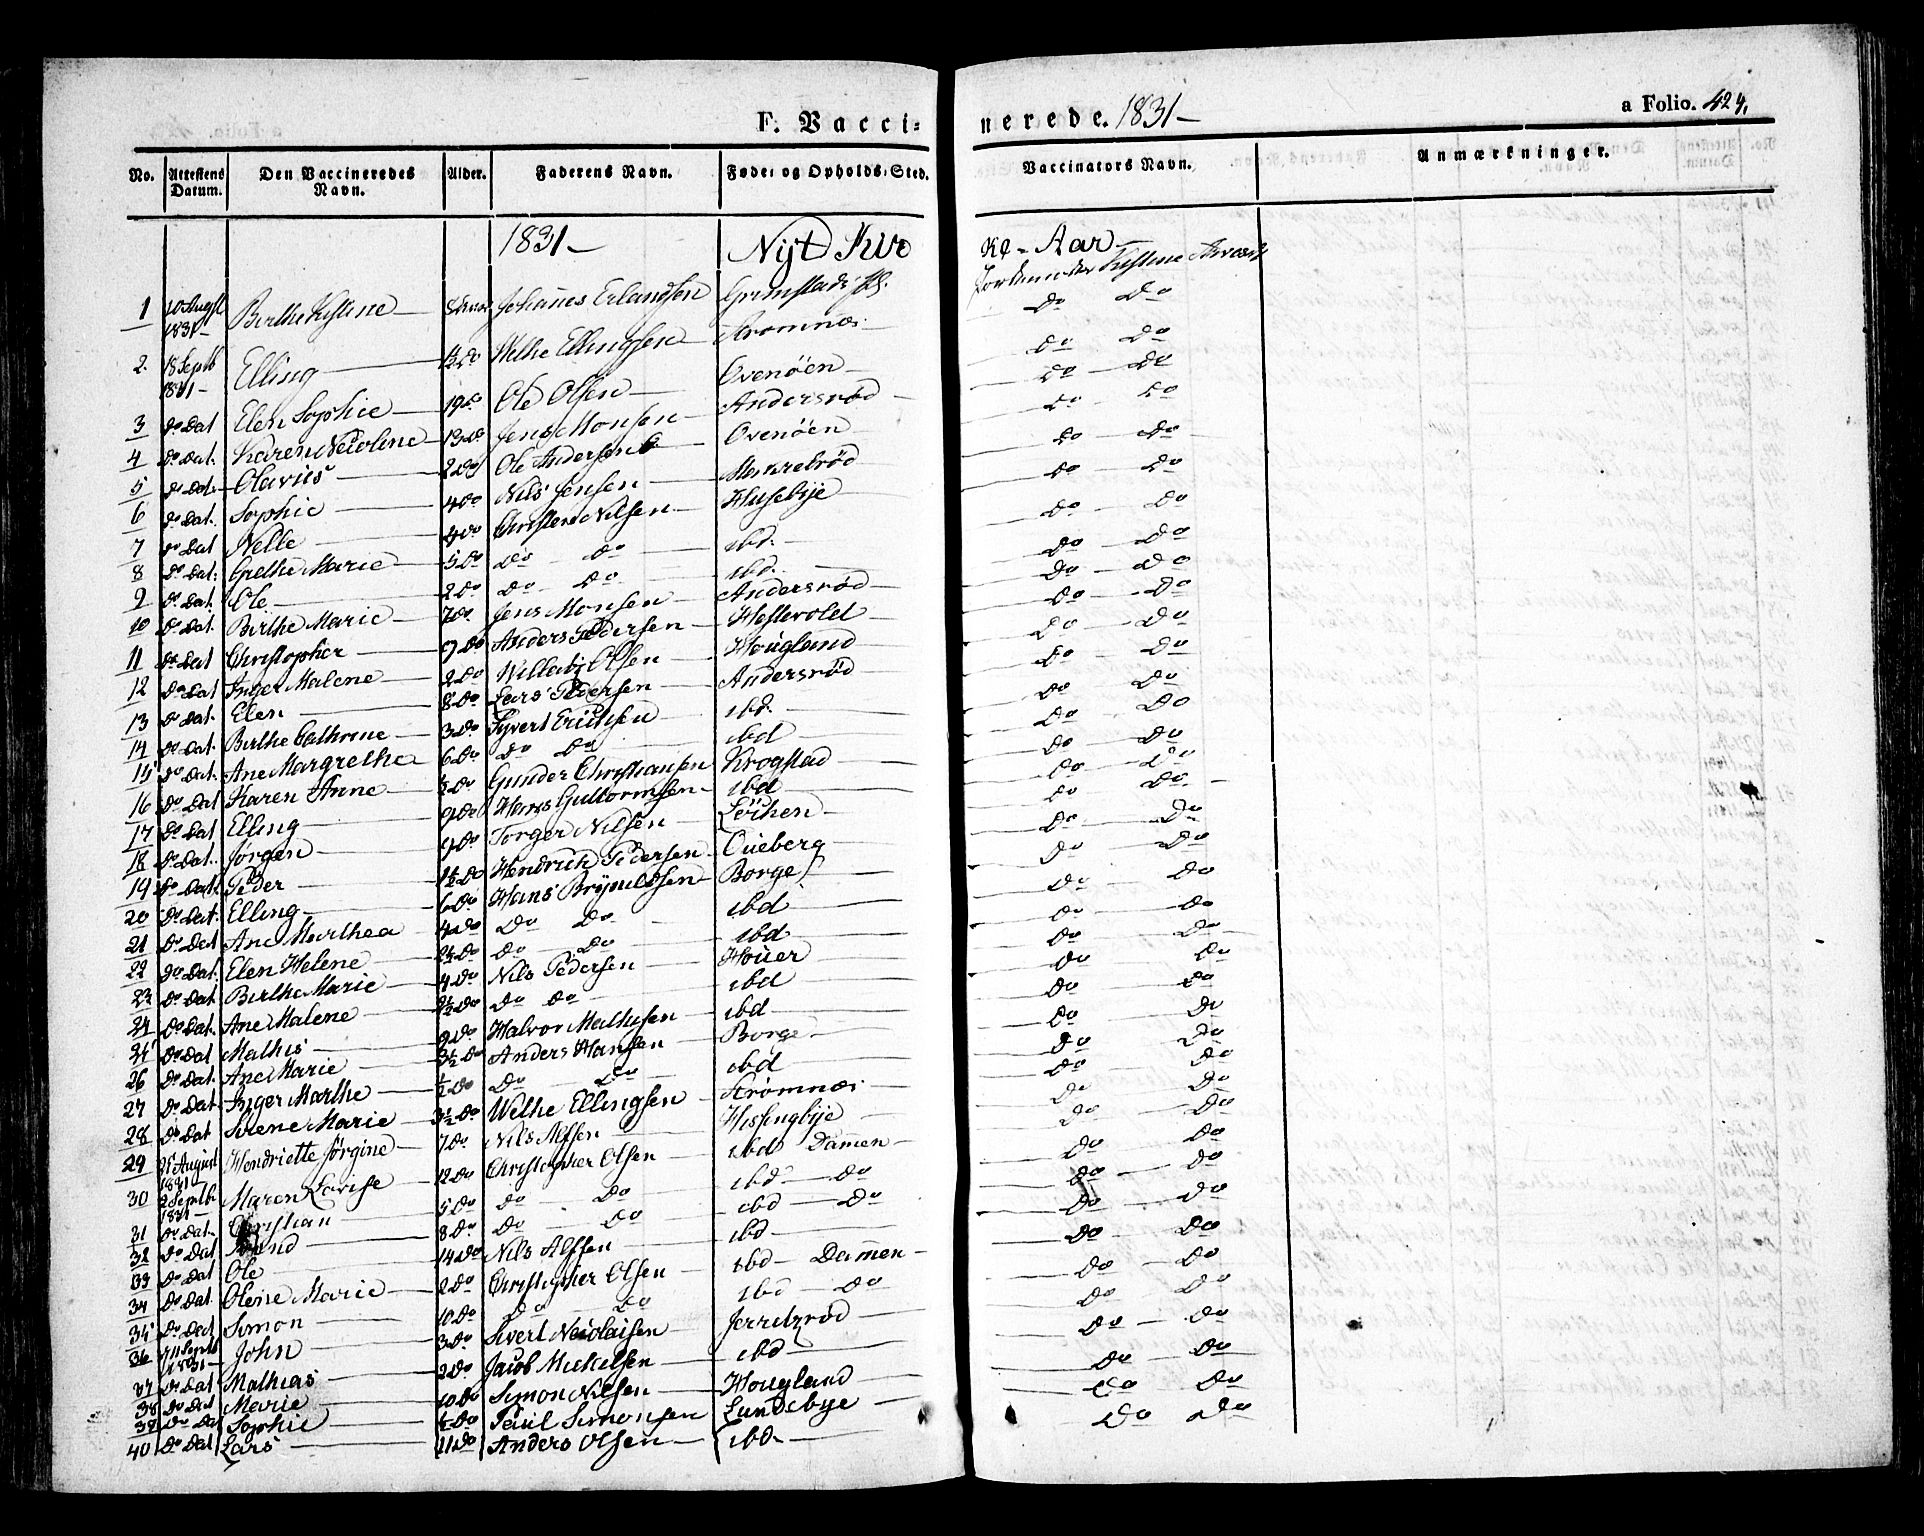 F. Vacci- nerede. 1831-
a Folio. 424.
No. Attestens Datum. Den Vaccineredes Navn. Alder. Faderens Navn. Føde- og Opholds-Sted. Vaccinators Navn. Anmærkninger.
1831- Nyt Kir ke-Aar-
Jordemoder
1 10 Augst 1831- Birthe Kistine Johanes Erlandsen Grimstad Do Do
2. 18 Septb 1831- Elling 1½ Do Wethe Ellingsen Strømnæs Do Do
3 Do Dat Elen Sophie 19 Do Ole Olsen Ovenöen Do Do
4 Do Dat. Karen Necoline 13 Do Jens Monsen Andersrød Do Do
5 Do Dat. Olavus 2 Do Ole Andersen Ovenöen Do Do
6 Do Dat. Sophie 4 Do Nils Jensen Do Do
7 Do Dat Nelle Do Christen Nilsen Husebye Do Do
8 Do Dat. Grethe Marie 5 Do Do Do ibd. Do Do
9 Do Dat. Ole 2 Do Do Do ibd. Do Do
10 Do Dat. Birthe Marie 7 Do Jens Monsen Andersrød Do Do
11 Do Dat Christopher 9 Do Anders Pedersen Hestevold Do Do
12 Do Dat Inger Malene 2 Do Olsen Houglund Do Do
13 Do Dat. Elen 8 Do Lars Pedersen Andersröd Do Do
14 Do Dat. Birthe Cathrine 3 Do Syvert Erichsen ibd. Do Do
15 Do Dat. Ane Margrethe 6 Do Do Do ibd Do Do
16 Do Dat Karen Anne ½ Do Gunder Christiansen Krogstad Do Do
17 Do Dat Elling 9 Do Hans Guttormsen ibd Do Do
18 Do Dat. Jørgen 9 Do Torger Nilsen Löchen Do Do
19 Do Dat. Peder 1½ Do Hendrich Pedersen Oueberg Do Do
20 Do Dat. Elling 6 Do Hans Bryneldsen Borge Do Do
21 Do Dat Ane Marthea 4 Do Do Do ibd Do Do
22 Do Dat. Elen Helene 2½ Do Do Do ibd Do Do
23 Do Dat Birthe Marie 4 Do Nils Pedersen Houer Do Do
24 Do Dat. Ane Malene 2½ Do Do Do ibd Do Do
25 Do Dat Mathis 9 Do Halvor Mathisen ibd Do Do
26 Do Dat. Ane Marie 3½ Do Anders Hansen Borge Do Do
27 Do Dat. Inger Marthe ½ Do Do Do ibd Do Do
28 Do Dat Sirene Marie 3½ Do Wethe Ellingsen Strømnæs Do Do
29 25 August 1831- Hendriette Jörgine 7 Do Nils Alfsen Hissingbye Do Do
30 2 Septb 1831- Maren Lovise 12 Do Christopher Olsen ibd Damen Do Do
31 Do Dat. Christian 5 Do Do Do ibd Do Do Do
32 Do Dat 8 Do Do Do ibd Do Do Do
33 Do Dat Ole 14 Do Nils Alfsen ibd Do Do
34 Do Dat. Olene Marie 2 Do Christopher Olsen ibd Damen Do Do
35 Do Dat Simon 10 Do Do Do ibd Do Do Do
36 11 Septb 1831- John 3 Do Sivert Necolaisen Do Do
37 Do Dat Mathias 2 Do Jacob Mickelsen ibd Do Do
38 Do Dat Marie 10 Do Simon Nilsen Hougland Do Do
39 Do Dat Sophie ½ Do Paul Simonsen Lundebye Do Do
40 Do Dat Lars 11 Do Anders Olsen ibd. Do Do